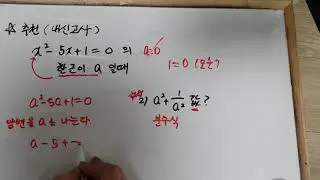 ☆ 추천 (내신고사)
x² - 5x + 1 = 0 의
한근이 a 일때
a=0
1=0 (모순)
a² - 5a + 1 = 0
양변을 a로 나눈다
a - 5 +
2) a² + 1/a² 값?
분수식